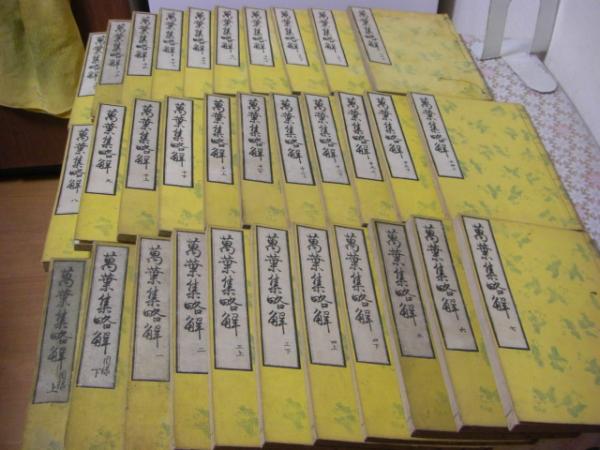 萬葉集略解
萬葉集略解
萬葉集略解
萬葉集略解
萬葉集略解
萬葉集略解
萬葉集略解
萬葉集略解
萬葉集略解
萬葉集略解
萬葉集略解 八
萬葉集略解 九
萬葉集略解 十上
萬葉集略解
萬葉集略解
萬葉集略解
萬葉集略解
萬葉集略解
萬葉集略解
萬葉集略解
萬葉集略解
萬葉集略解 目録 上
萬葉集略解 目録 下
萬葉集略解 一
萬葉集略解 二
萬葉集略解 三上
萬葉集略解 三下
萬葉集略解 四上
萬葉集略解 四下
萬葉集略解 五
萬葉集略解 六
萬葉集略解 七